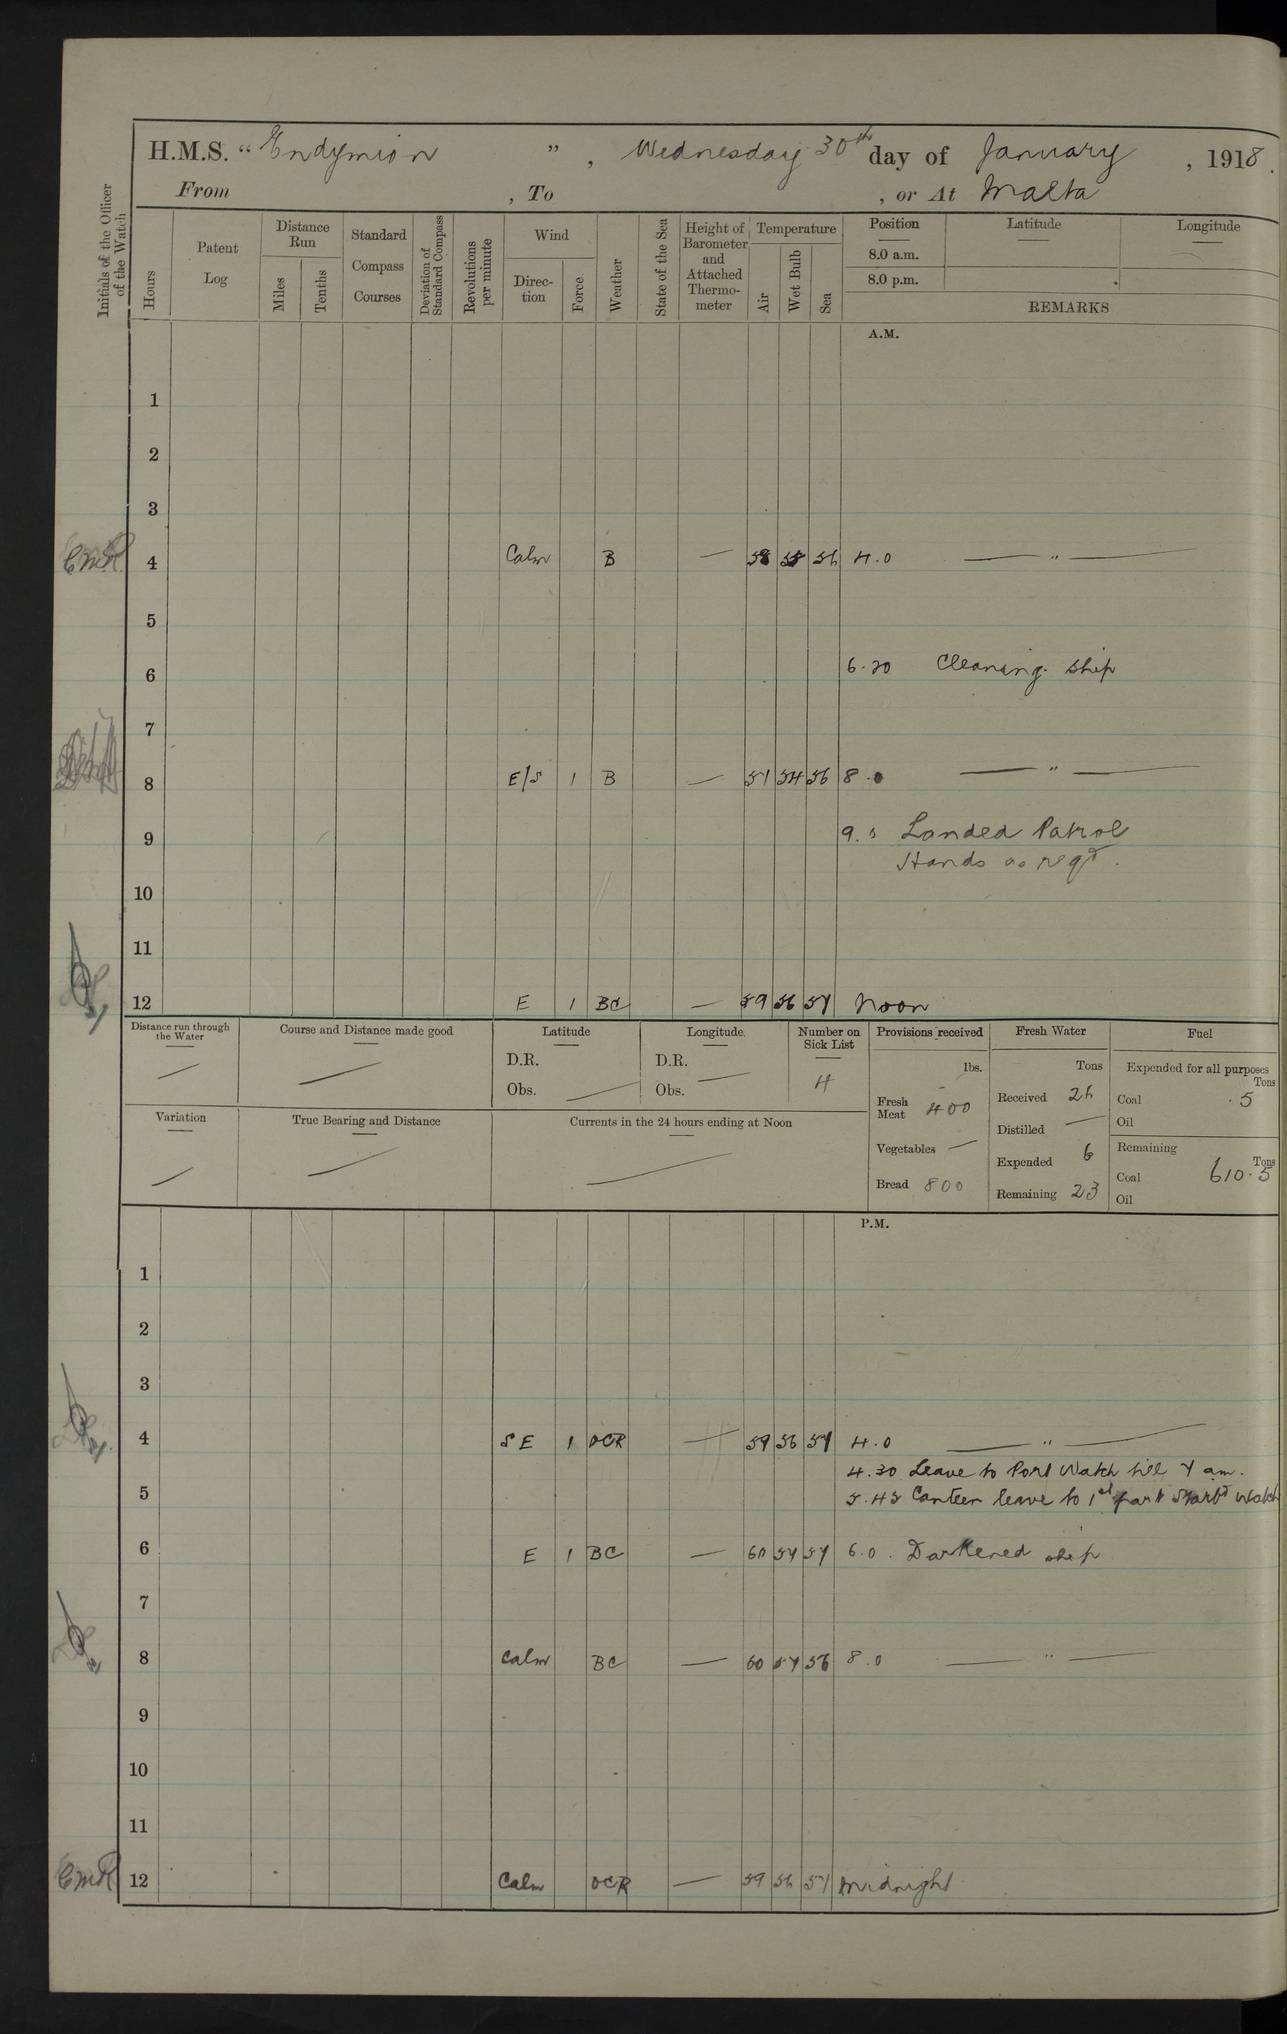 H.M.S. “ Endymion ” , Wednesday 30th day of January , 1918.
From , To , or At Malta
Initials of the Officer of the Watch
Hours
Patent Log
Distance Run
Miles
Tenths
Standard Compass Courses
Deviation of Standard Compass
Revolutions per minute
Wind
Direc-tion
Force
Weather
State of the Sea
Height of Barometer and Attached Thermo-meter
Temperature
Air
Wet Bulb
Sea
Position
Latitude
Longitude
8.0 a.m.
8.0 p.m.
REMARKS
A.M.
1
2
3
CMR 4 Calm B — 58 55 56 4.0 — " —
5
6 6.20 Cleaning ship
7
8 E/S 1 B — 51 54 56 8.0 — " —
9 9. Landed Patrol
Hands as reqd.
10
11
12 E 1 BC — 59 56 57 Noon
Distance run through the Water —
Course and Distance made good —
Latitude
D.R.
Obs. —
Longitude
D.R.
Obs. —
Number on Sick List
4
Provisions received
lbs.
Fresh Meat 400
Vegetables —
Bread 800
Fresh Water
Tons
Received 26
Distilled —
Expended 6
Remaining 23
Fuel
Expended for all purposes
Tons
Coal .5
Oil
Remaining
Tons
Coal 610.5
Oil
Variation —
True Bearing and Distance —
Currents in the 24 hours ending at Noon —
P.M.
1
2
3
4 SE 1 OCR — 59 56 57 4.0 — " —
4.30 Leave to Port Watch till 7 am.
5 5.45 Canteen leave to 1st part Starbd Watch
6 E 1 BC — 60 57 57 6.0. Darkened ship
7
8 Calm BC — 60 57 56 8.0 — " —
9
10
11
CMR 12 Calm OCR — 59 56 57 Midnight